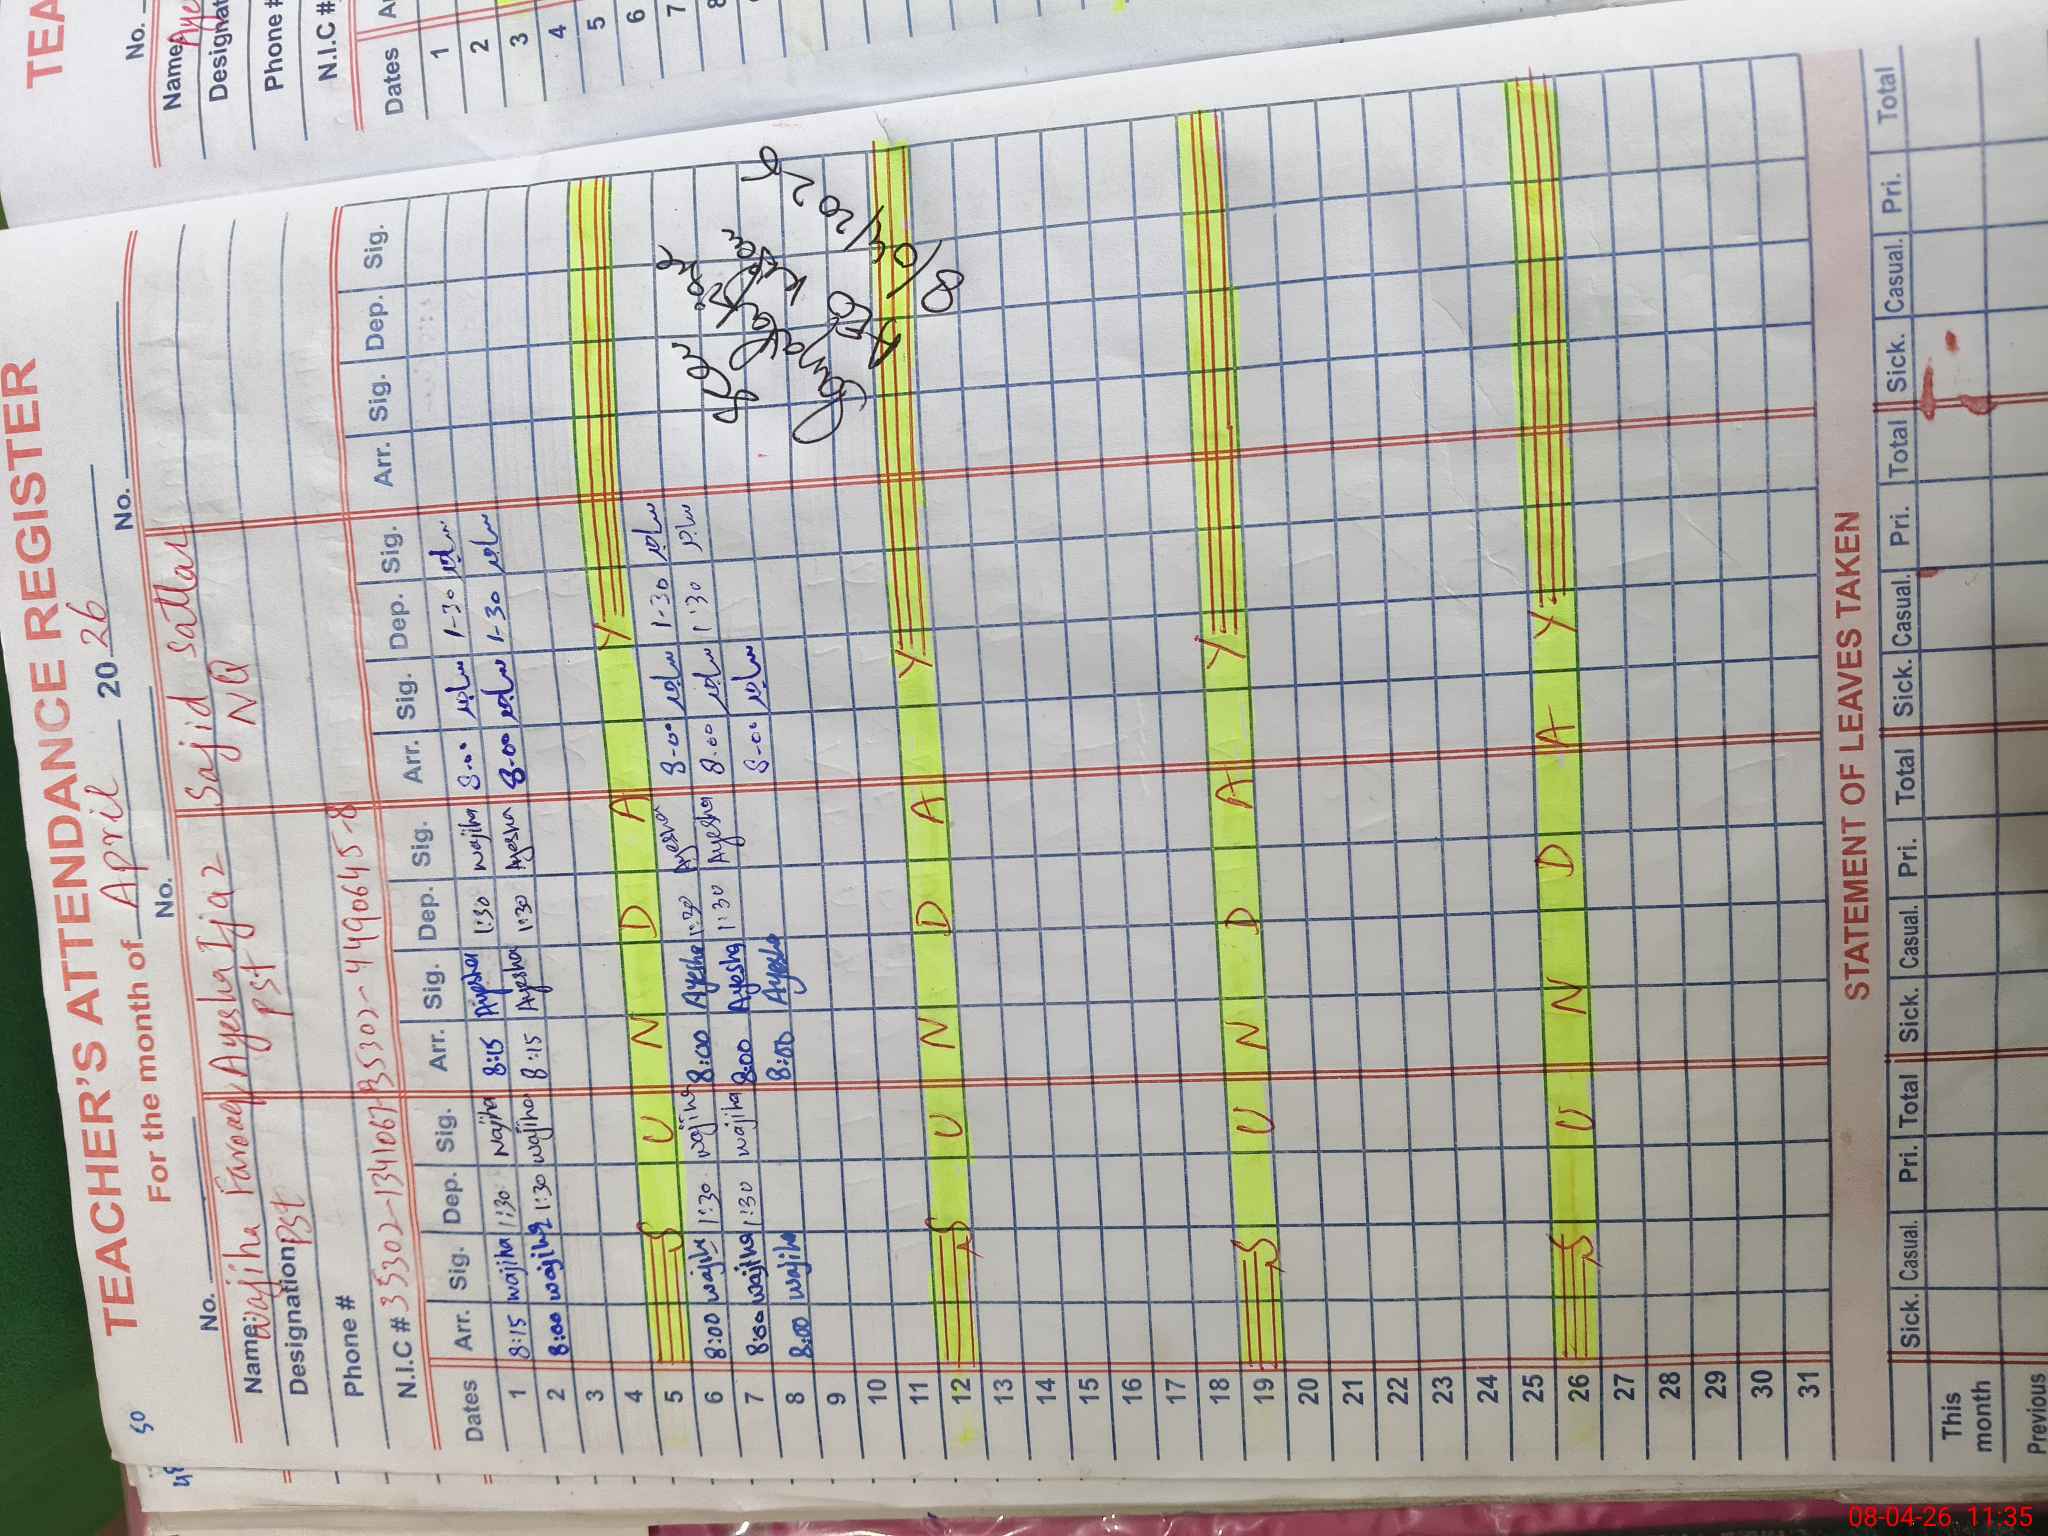 TEACHER'S ATTENDANCE REGISTER
For the month of April 2026
No. No. No.
Name: Wajiha Farooq Ayesha Ijaz Sajid Sattar
Designation: PST PST NQ
Phone #
N.I.C # 35302-1341067- 35302-4490645-8
Dates Arr. Sig. Dep. Sig. Arr. Sig. Dep. Sig. Arr. Sig. Dep. Sig. Arr. Sig. Dep. Sig.
1 8:15 wajiha 1:30 wajiha 8:15 Ayesha 1:30 wajiha 8-00 1-30
2 8:00 wajiha 1:30 wajiha 8:15 Ayesha 1:30 Ayesha 8-00 1-30
3
4
5 S U N D A Y
6 8:00 wajiha 1:30 wajiha 8:00 Ayesha 1:30 Ayesha 8-00 1-30
7 8:00 wajiha 1:30 wajiha 8:00 Ayesha 1:30 Ayesha 8.00 1:30
8 8:00 wajiha 8:00 Ayesha 8-00
9
10
11
12 S U N D A Y
13
14
15
16
17
18
19 S U N D A Y
20
21
22
23
24
25
26 S U N D A Y
27
28
29
30
31
AEO
8/04/2026
STATEMENT OF LEAVES TAKEN
Sick. Casual. Pri. Total Sick. Casual. Pri. Total Sick. Casual. Pri. Total Sick. Casual. Pri. Total
This month
Previous
50
TEA
No.
Name:
Designat
Phone #
N.I.C #
Dates
1
2
3
4
5
6
7
8
08-04-26 11:35